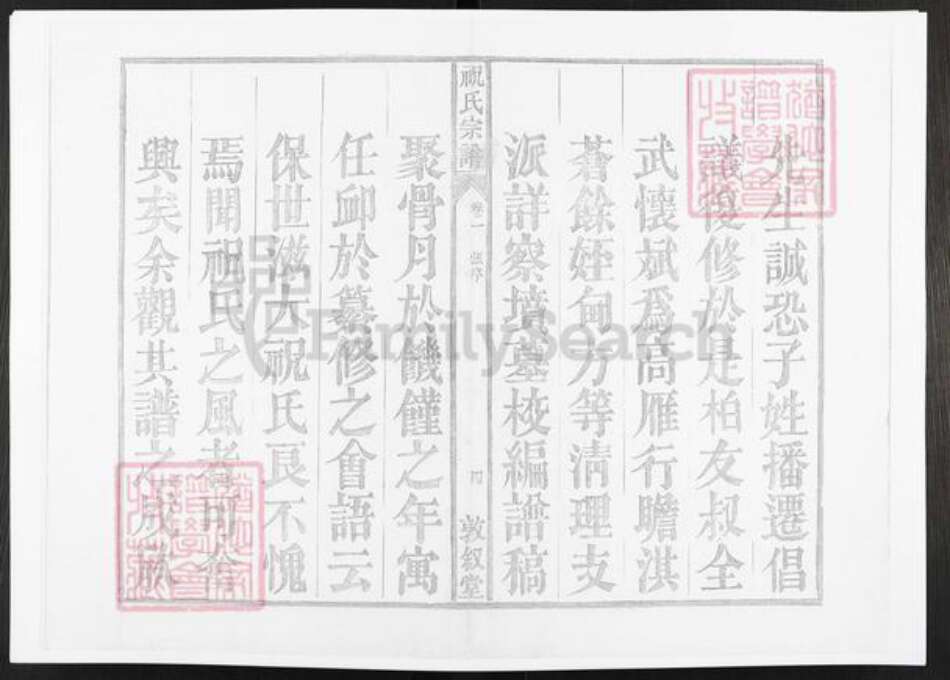 先生誠恐子姓播遷倡
議復修於是柏友叔全
武懷斌為高雁行瞻淇
蒼餘姪甸方等清理支
派詳察墳墓校編譜稿
祝氏宗譜 卷一 張序 四 敦叙堂
聚骨月於饑饉之年寓
任卹於纂修之會語云
保世滋大祝氏艮不愧
焉聞祝氏之風者可奮
興矣余觀其譜之成故
FamilySearch